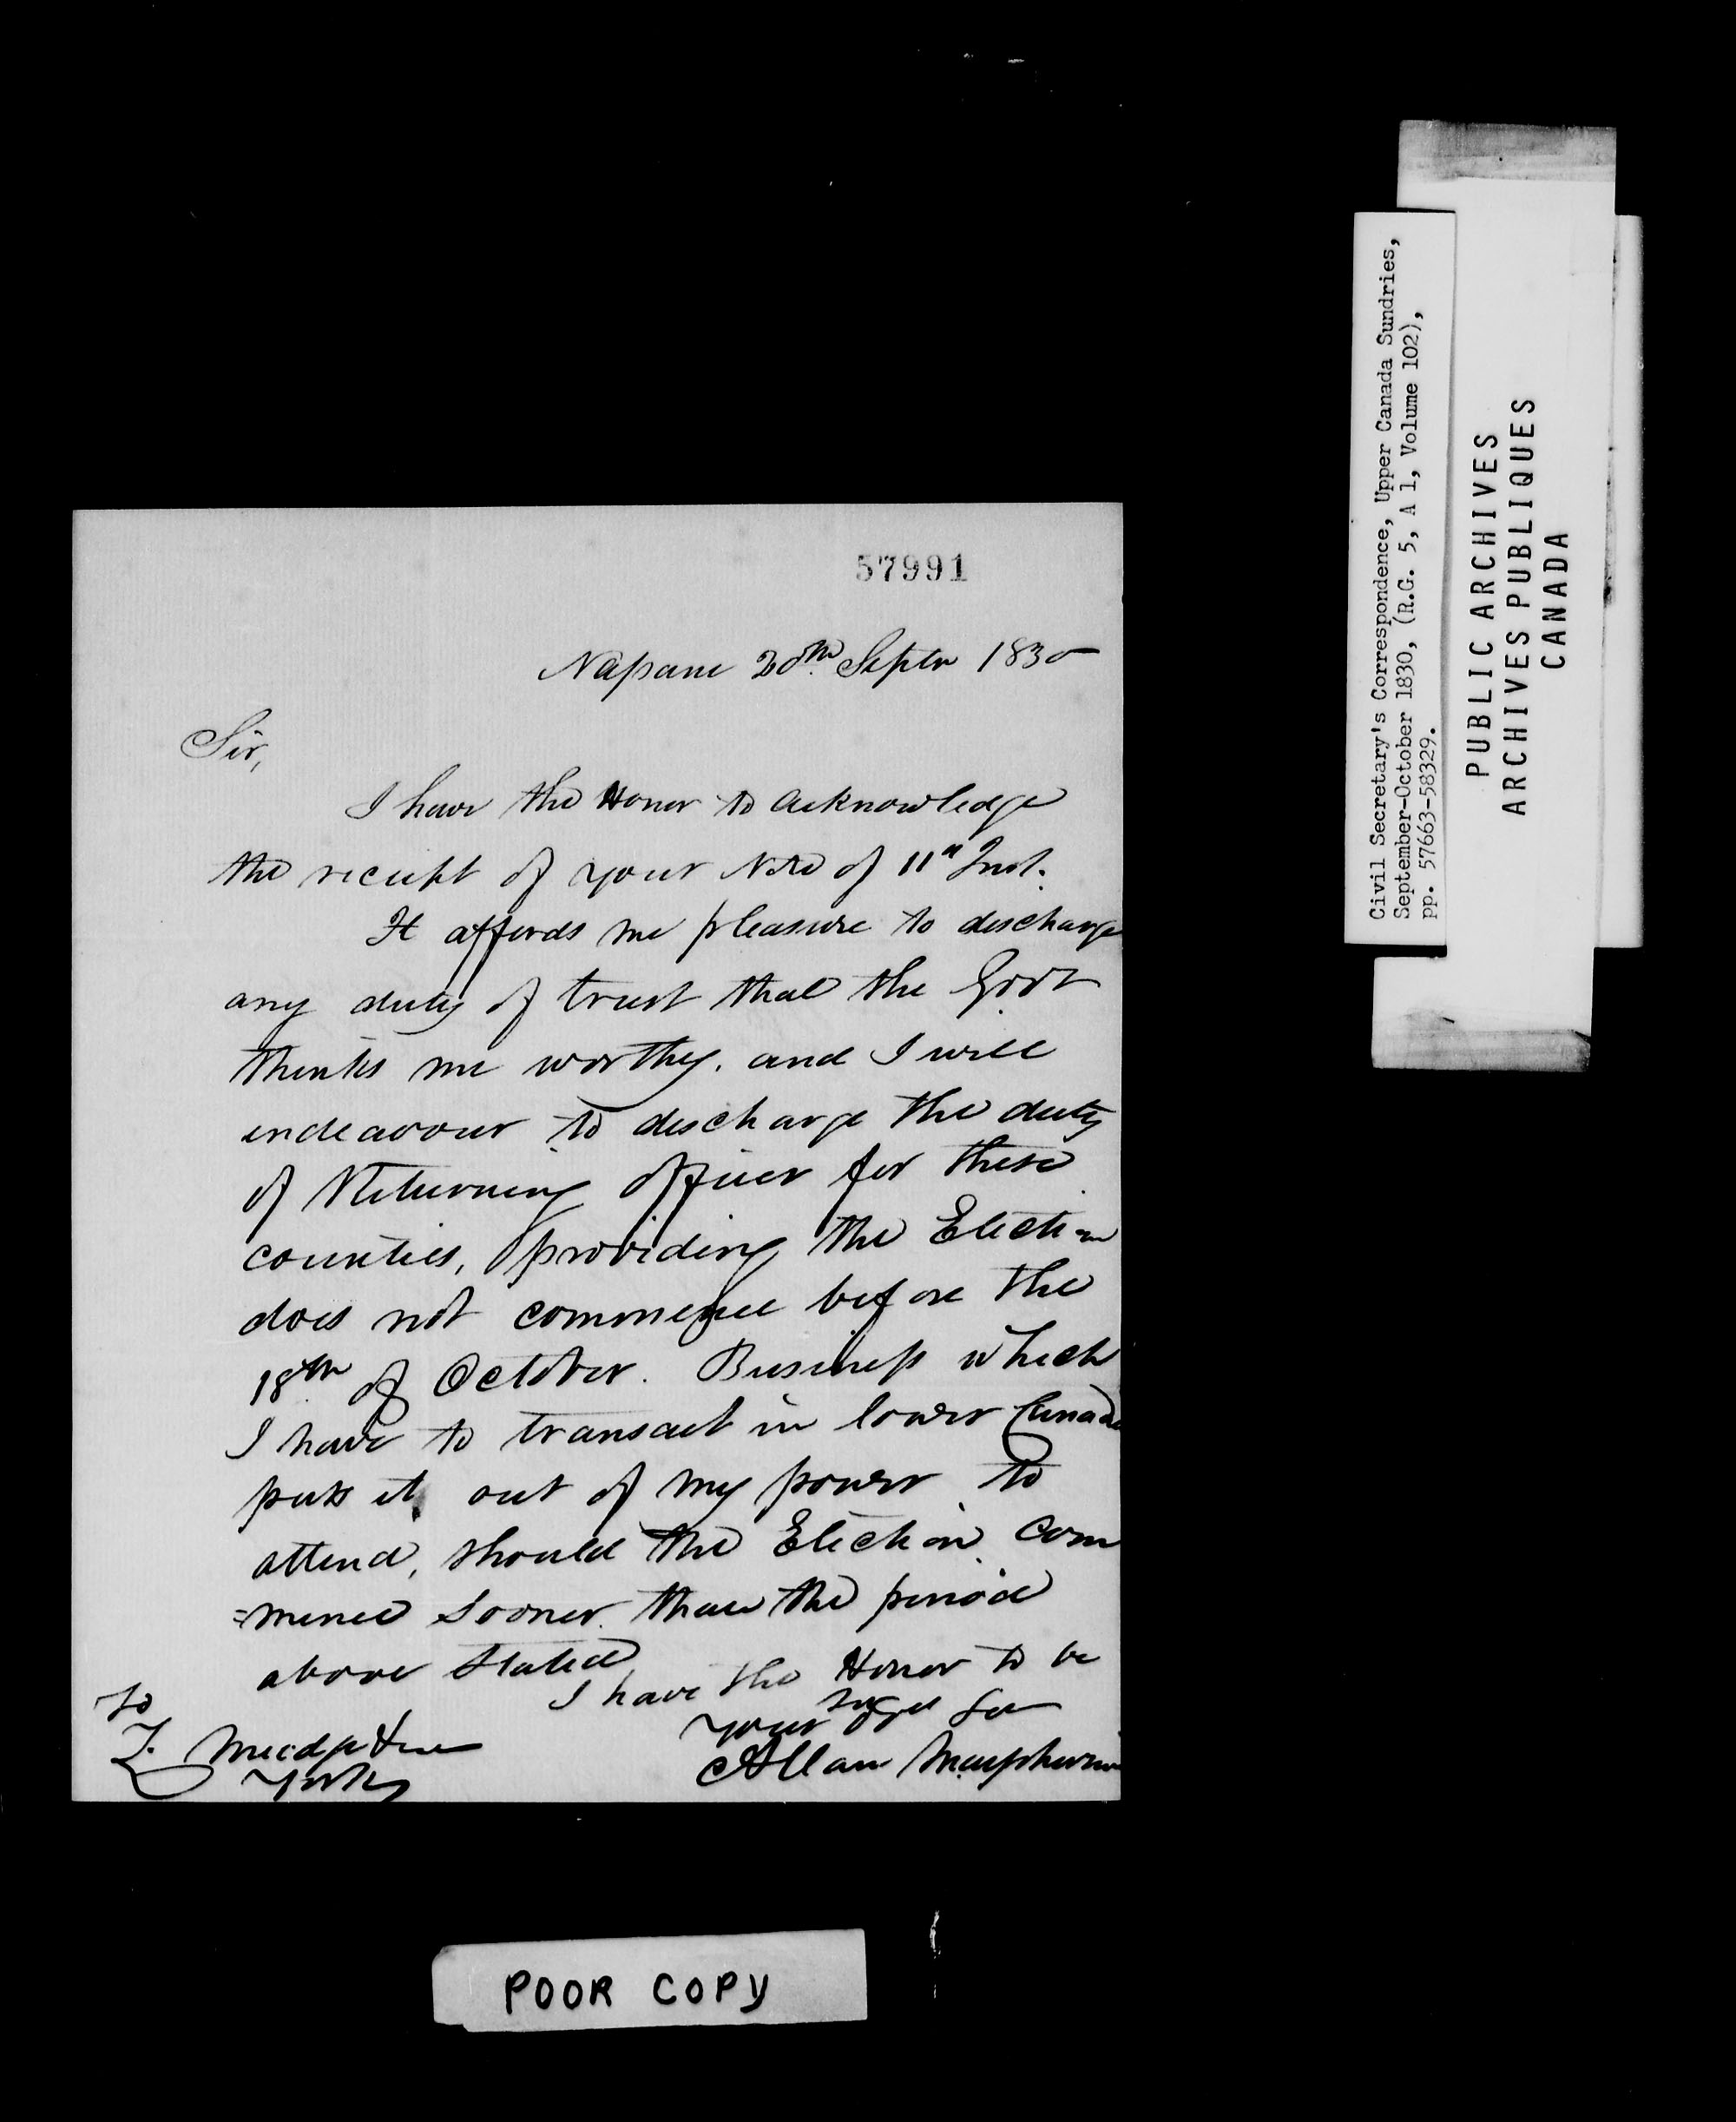 57991
Napane 20th. Septr 1830
Sir,
I have the Honor to acknowledge
the receipt of your Note of 11th Inst.
It affords me pleasure to discharge
any duty of trust that the Govt
thinks me worthy. and I will
endeavour to discharge the duty
of Returning officer for these
counties, providing the Election
does not commence before the
18th of October. Business which
I have to transact in lower Canada
puts it out of my power to
attend, should the Election com
=mence sooner than the period
above stated
I have the Honor to be
your
To
Z. Mudge
York
Allan Macpherson
POOR COPY
Civil Secretary's Correspondence, Upper Canada Sundries,
September-October 1830, (R.G. 5, A 1, Volume 102),
pp. 57663-58329.
PUBLIC ARCHIVES
ARCHIVES PUBLIQUES
CANADA